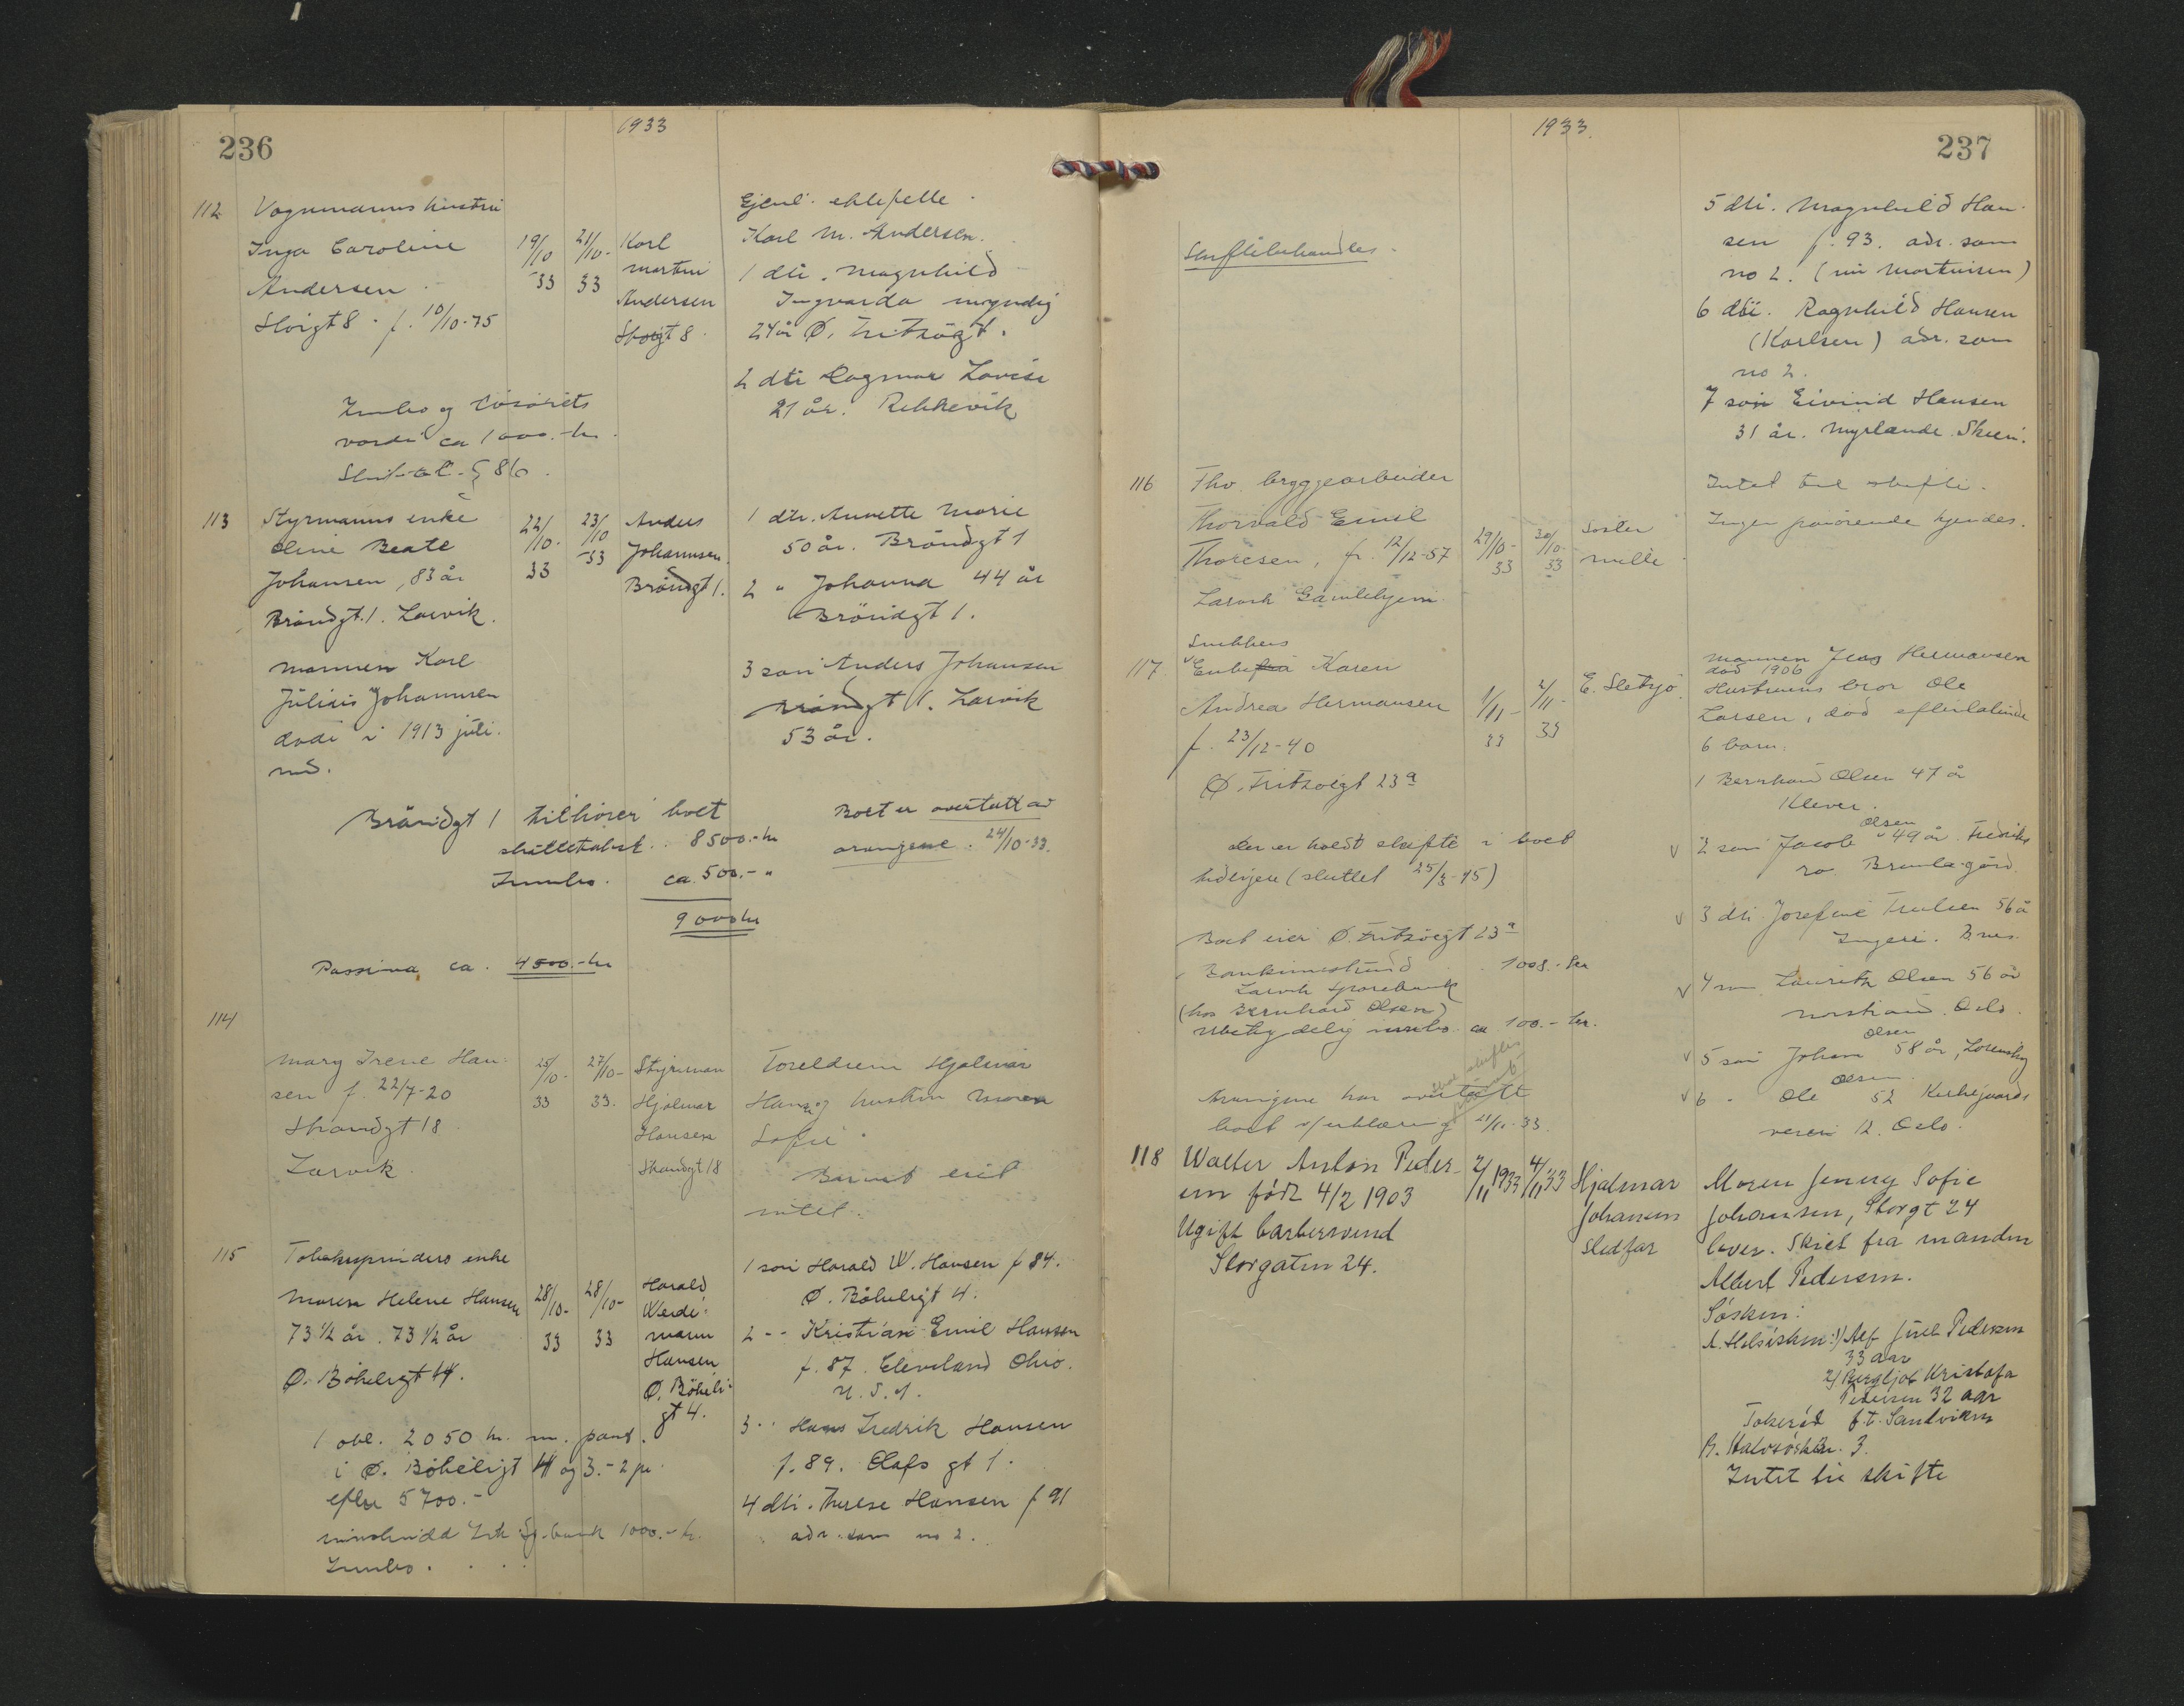 236
1933
112
Vognmanns hustru
Inga Caroline
Andersen
f. 10/10-75
19/10
33
21/10-
33
Karl
Martin
Andersen
Ejenl. ektefelle
Karl M. Andersen.
1 dtr. Magnhild
Ingvarda myndig
24 år Ø. Fritzøgt.
2 dtr Dagmar Lovise
21 år. Rekkevik
Innbo og løsørets
verdi ca 1000.- kr.
§ 86.
113
Styrmanns enke
Oline Beate
Johansen, 83 år
Brøndgt. 1. Larvik.
22/10-
33
23/10
-33
Anders
Johannsen.
Brøndgt 1.
1 dtr. Annette Marie
50 år. Brøndgt 1
2 " Johanna 44 år
Brøndgt 1.
mannen Karl
Julius Johannsen
døde i 1913 juli
md.
3 søn Anders Johansen
Brøndgt 1. Larvik
53 år.
Brøndgt 1 tilhører boet
skattetakst. 8500.- kr
Innbo. ca. 500.- "
9000 kr
Passiva ca. 4500.- kr
Boet er overtatt av
arvingene. 24/10-33.
114
Mary Irene Han-
sen f. 22/7-20
Strandgt 18
Larvik.
25/10-
33
27/10-
33.
Styrman
Hjalmar
Hansen
Strandgt. 18
Foreldrene Hjalmar
Hans. og hustru Maren
Sofie
Barnet eiet
intet.
115
Tobakspinders enke
Maren Helene Hansen
73 1/2 år. 73 1/2 år
Ø. Bøkeligt 4.
28/10-
33
28/10-
33
Harald
Weide-
mann
Hansen
Ø. Bøkeli-
gt 4.
1 søn Harald W. Hansen f 84.
Ø. Bøkeligt 4.
2 - - Kristian Emil Hansen
f. 87. Cleveland Ohio.
U. S. A.
3 - - Hans Fredrik Hansen
f. 89. Olafs gt 1.
4 dtr. Therese Hansen f 91
adr. som no 2.
1 obl. 2050 kr. m. pant.
i Ø. Bøkeligt 4 og 3.- 2 pr.
efter 5700.-
1000.- kr.
Innbo. . . .
1933.
237
Skiftebehandles.
5 dtr. Magnhild Han-
sen f. 93. adr. som
no 2. (nu Martinsen)
6 dtr. Ragnhild Hansen
(Karlsen) adr. som
no 2.
7 søn Eivind Hansen
31 år. Myrlande. Skien.
116
Fhv. bryggearbeider
Thorvald Emil
Thoresen, f. 12/12-57
Larvik Gamlehjem.
29/10-
33
30/10-
33
Søster
Intet til skifte.
Ingen pårørende kjendes.
117
Snekkers
Enkefru Karen
Andrea Hermansen
f. 23/12-40
Ø. Fritzøegt 23 a
1/11-
33
2/11-
33
E. Sletsjø.
mannen Jens Hermansen
død 1906
Hustruens bror Ole
Larsen, død efterlatende
6 barn:
1 Bernhard Olsen 47 år
Klever.
der er holdt skifte i boet
tidligere (sluttet 25/3-15)
2 søn Jacob Olsen 49 år. Fredriks
ro Brunla gård
Boet eier Ø. Fritzøegt 23 a
Bankinnskudd 1008.- kr
Larvik Sparebank
(hos Bernhard Olsen)
Ubetydelig innbo. ca 100.- kr.
3 dtr. Josefine 56 å
4 søn Lauritz Olsen 56 år
Oslo.
5 søn Johan Olsen 58 år,
6 - Ole Olsen 52 Kirkegaards
veien 12. Oslo.
Arvingene har overtatt
boet v/erklæring 21/11-33.
118
Walter Anton Peder-
sen født 4/2 1903
Ugift barbersvend
Storgaten 24.
2/11 1933
4/11 '33
Hjalmar
Johansen
Stedfar
Moren Jenny Sofie
Johansen, Storgt 24
lever. Skilt fra manden
Albert Pedersen.
Søsken:
A. Helsøsken: 1) Alf Juel Pedersen
33 aar
2) Bergljot Kristofa
Pedersen 32 aar
f. t. Sandviken
B. Halvsøsken. 3.
Intet til skifte